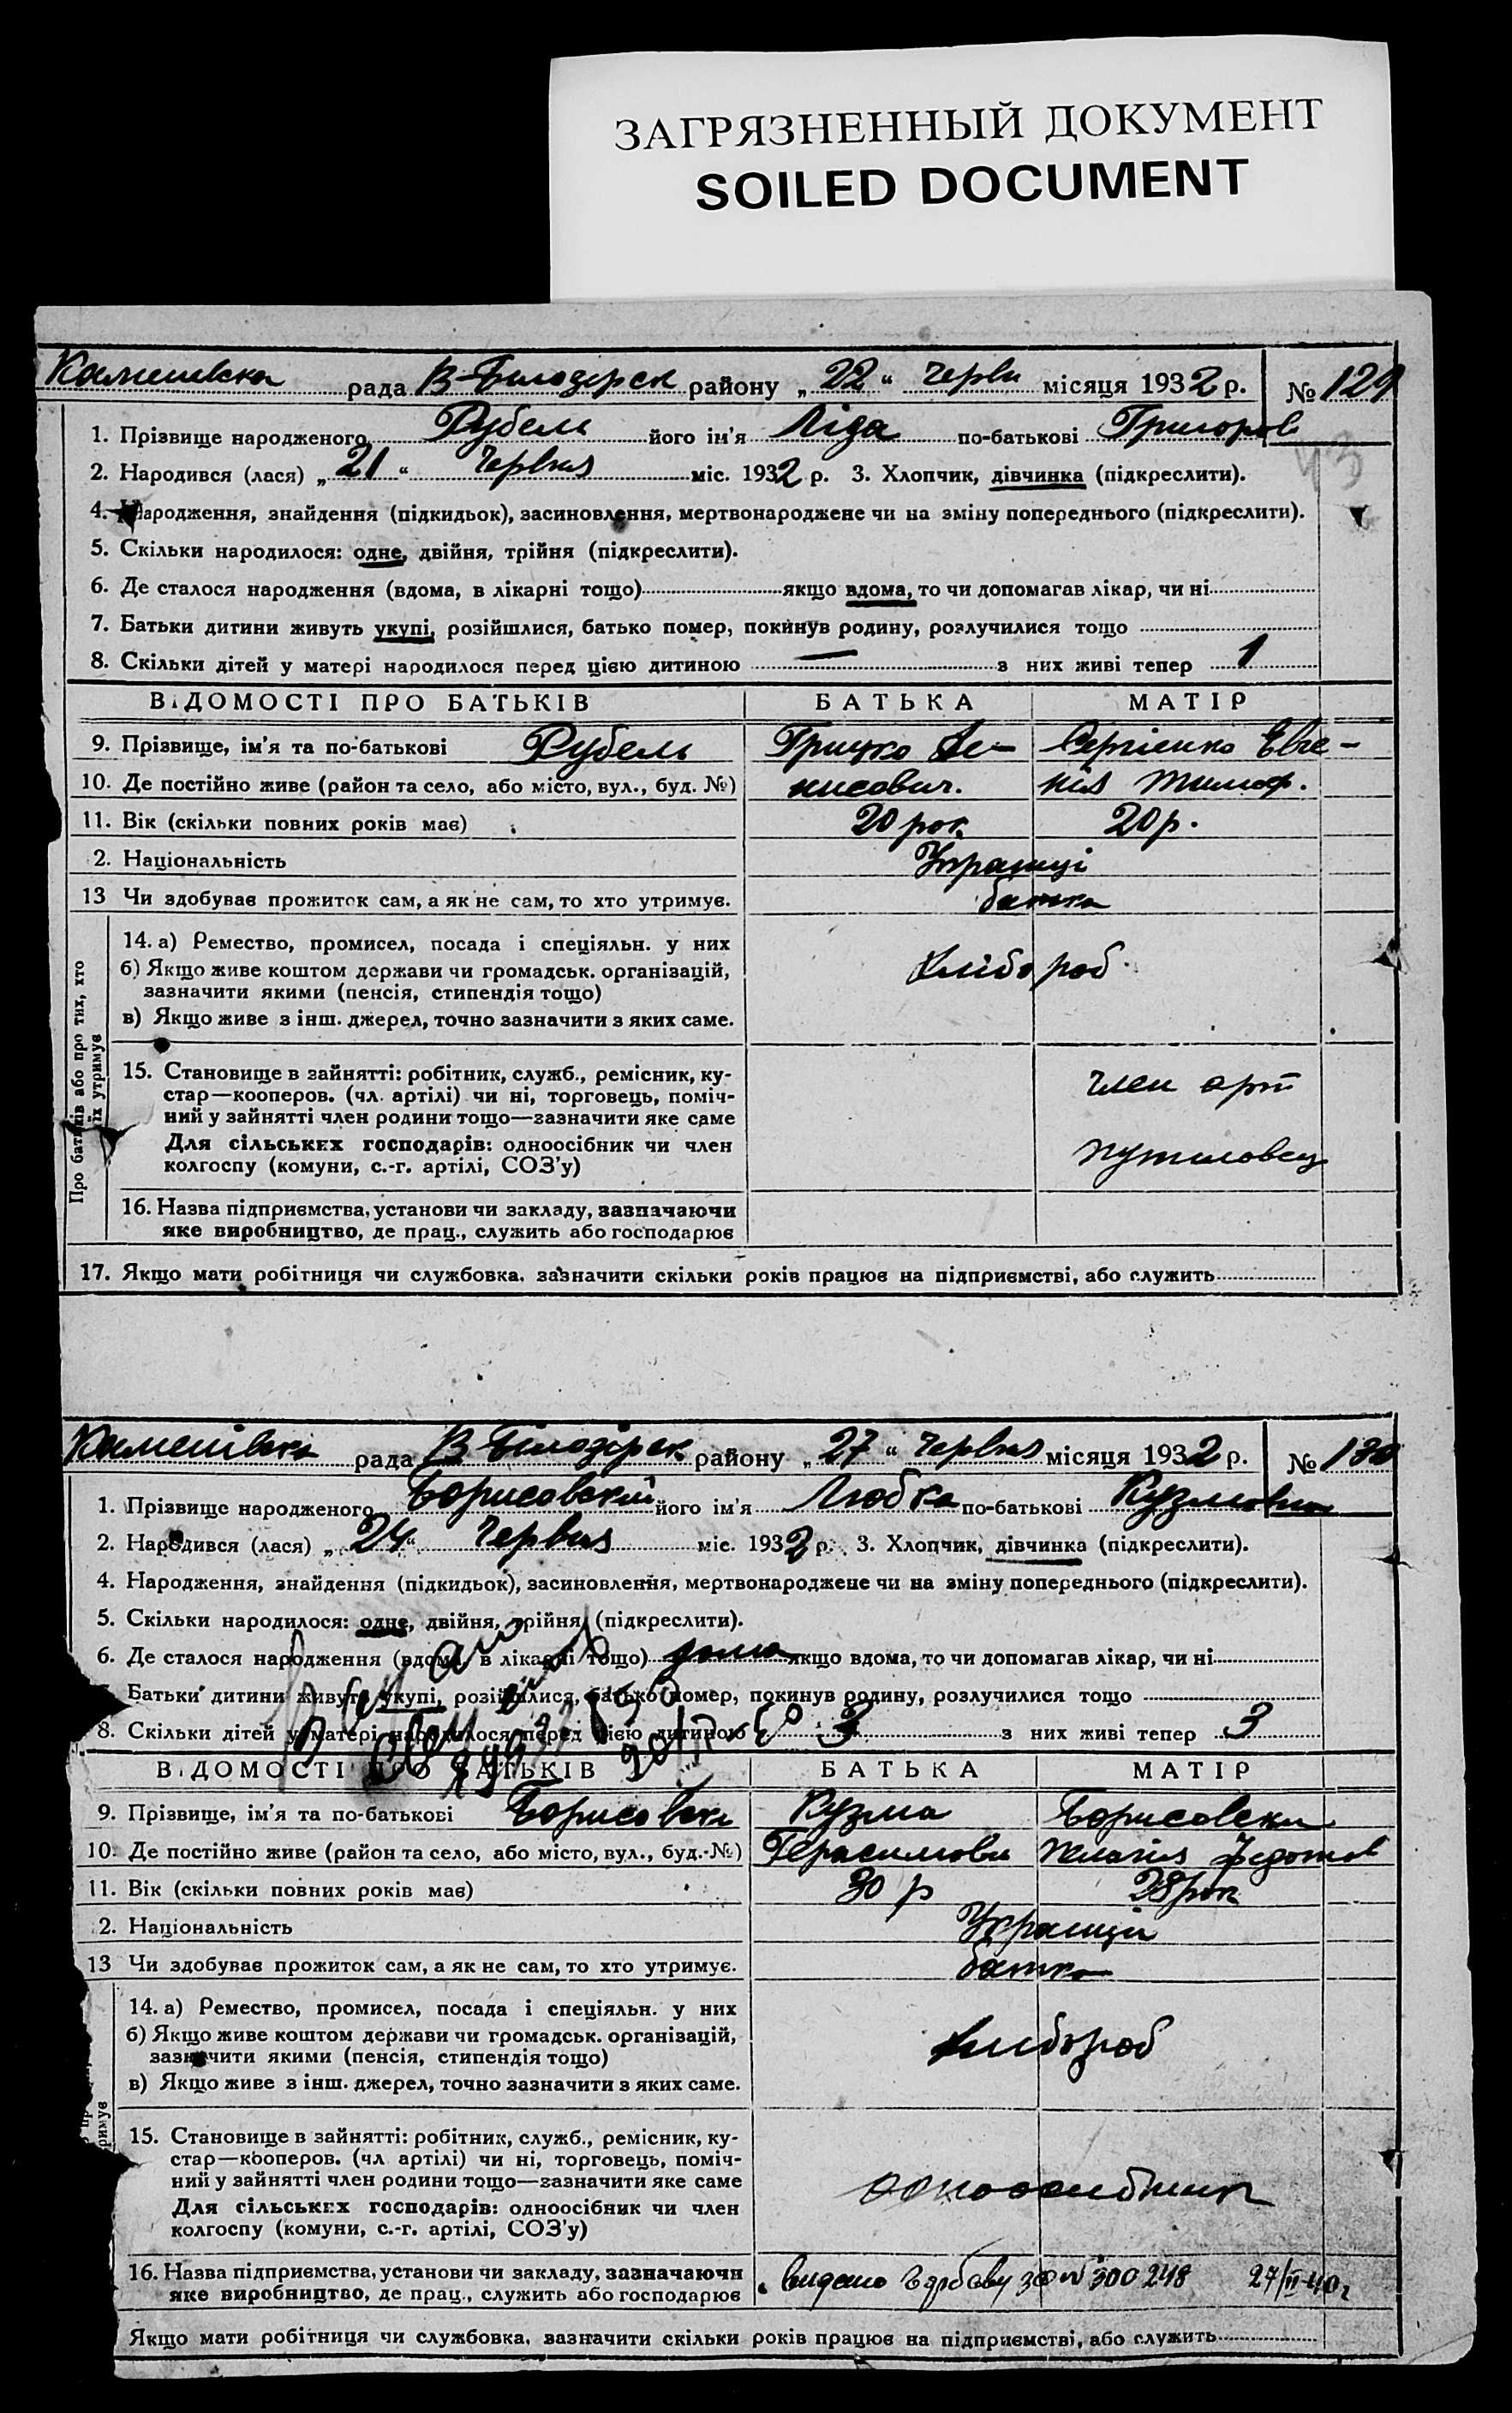 ЗАГРЯЗНЕННЫЙ ДОКУМЕНТ
SOILED DOCUMENT
рада В-Білозірск району „ 22 “ черви місяця 1932 р. № 129
1. Прізвище народженого Рубель його ім'я Ліда по-батькові Григоров
43
2. Народився (лася) „ 21 “ червня міс. 1932 р. 3. Хлопчик, дівчинка (підкреслити).
4. Народження, знайдення (підкидьок), засиновлення, мертвонароджене чи на зміну попереднього (підкреслити).
5. Скільки народилося: одне, двійня, трійня (підкреслити).
6. Де сталося народження (вдома, в лікарні тощо) якщо вдома, то чи допомагав лікар, чи ні
7. Батьки дитини живуть укупі, розійшлися, батько помер, покинув родину, розлучилися тощо
8. Скільки дітей у матері народилося перед цією дитиною — з них живі тепер 1
ВІДОМОСТІ ПРО БАТЬКІВ БАТЬКА МАТІР
9. Прізвище, ім'я та по-батькові Рубель Грицко Де- Сергієнко Евге-
10. Де постійно живе (район та село, або місто, вул., буд. №) нисович. нія Тимоф.
11. Вік (скільки повних років має) 20 рок 20 р.
2. Національність Украинці
13 Чи здобуває прожиток сам, а як не сам, то хто утримує. батька
Про батьків або про тих, хто їх утримує
14. а) Ремество, промисел, посада і спеціяльн. у них
б) Якщо живе коштом держави чи громадськ. організацій, хлібороб
зазначити якими (пенсія, стипендія тощо)
в) Якщо живе з інш. джерел, точно зазначити з яких саме.
15. Становище в зайнятті: робітник, служб., ремісник, ку- член арт
стар—кооперов. (чл. артілі) чи ні, торговець, поміч-
ний у зайнятті член родини тощо—зазначити яке саме
Для сільських господарів: одноосібник чи член путиловец
колгоспу (комуни, с.-г. артілі, СОЗ'у)
16. Назва підприємства, установи чи закладу, зазначаючи
яке виробництво, де прац., служить або господарює
17. Якщо мати робітниця чи службовка, зазначити скільки років працює на підприємстві, або служить
рада В-Білозірск району „ 27 “ червня місяця 1932 р. № 130
1. Прізвище народженого Борисовский його ім'я Любка по-батькові Кузмовна
2. Народився (лася) „ 24 “ червня міс. 1932 р. 3. Хлопчик, дівчинка (підкреслити).
4. Народження, знайдення (підкидьок), засиновлення, мертвонароджене чи на зміну попереднього (підкреслити).
5. Скільки народилося: одне, двійня, трійня (підкреслити).
6. Де сталося народження (вдома, в лікарні тощо) дома якщо вдома, то чи допомагав лікар, чи ні
Батьки дитини живуть укупі, розійшлися, батько помер, покинув родину, розлучилися тощо
8. Скільки дітей у матері народилося перед цією дитиною 3 з них живі тепер 3
ВІДОМОСТІ ПРО БАТЬКІВ БАТЬКА МАТІР
9. Прізвище, ім'я та по-батькові Борисовски Кузма Борисовски
10. Де постійно живе (район та село, або місто, вул., буд. №) Герасимови Федотов
11. Вік (скільки повних років має) 30 р 28 рок
2. Національність Украинци
13 Чи здобуває прожиток сам, а як не сам, то хто утримує. батко
14. а) Ремество, промисел, посада і спеціяльн. у них
б) Якщо живе коштом держави чи громадськ. організацій, хлибороб
зазначити якими (пенсія, стипендія тощо)
в) Якщо живе з інш. джерел, точно зазначити з яких саме.
15. Становище в зайнятті: робітник, служб., ремісник, ку-
стар—кооперов. (чл артілі) чи ні, торговець, поміч-
ний у зайнятті член родини тощо—зазначити яке саме
Для сільських господарів: одноосібник чи член одноосибник
колгоспу (комуни, с.-г. артілі, СОЗ'у)
16. Назва підприємства, установи чи закладу, зазначаючи видано за № 300248 27/II-40 г
яке виробництво, де прац., служить або господарює
Якщо мати робітниця чи службовка, зазначити скільки років працює на підприємстві, або служить